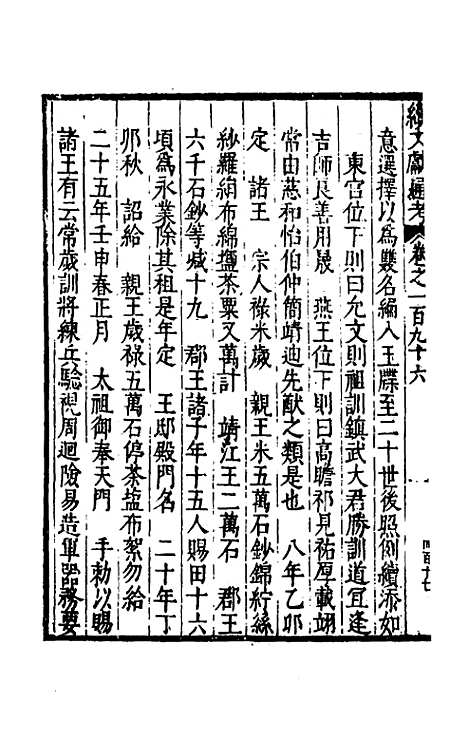 續文獻通考 卷之一百九十六
意選擇以為雙名編入玉牒至二十世後照例續添如
東宮位下則曰允文則祖訓鎮武大君勝訓道宜逢
吉師良善用晟 燕王位下則曰高瞻祁見祐厚載翊
常由慈和怡伯仲簡靖迪先猷之類是也 八年乙卯
定 諸王 宗人祿米歲 親王米五萬石鈔錦紵絲
紗羅絹布綿塩茶粟又萬計 靖江王二萬石 郡王
六千石鈔等城十九 郡王諸子年十五人賜田十六
頃為永業除其租是年定 王邸殿門名 二十年丁
夘秋 詔給 親王歲祿五萬石停茶塩布絮勿給
二十五年壬申春正月 太祖御奉天門 手勑以賜
諸王有云常歲訓將練兵驗視周迴險易造軍器務要